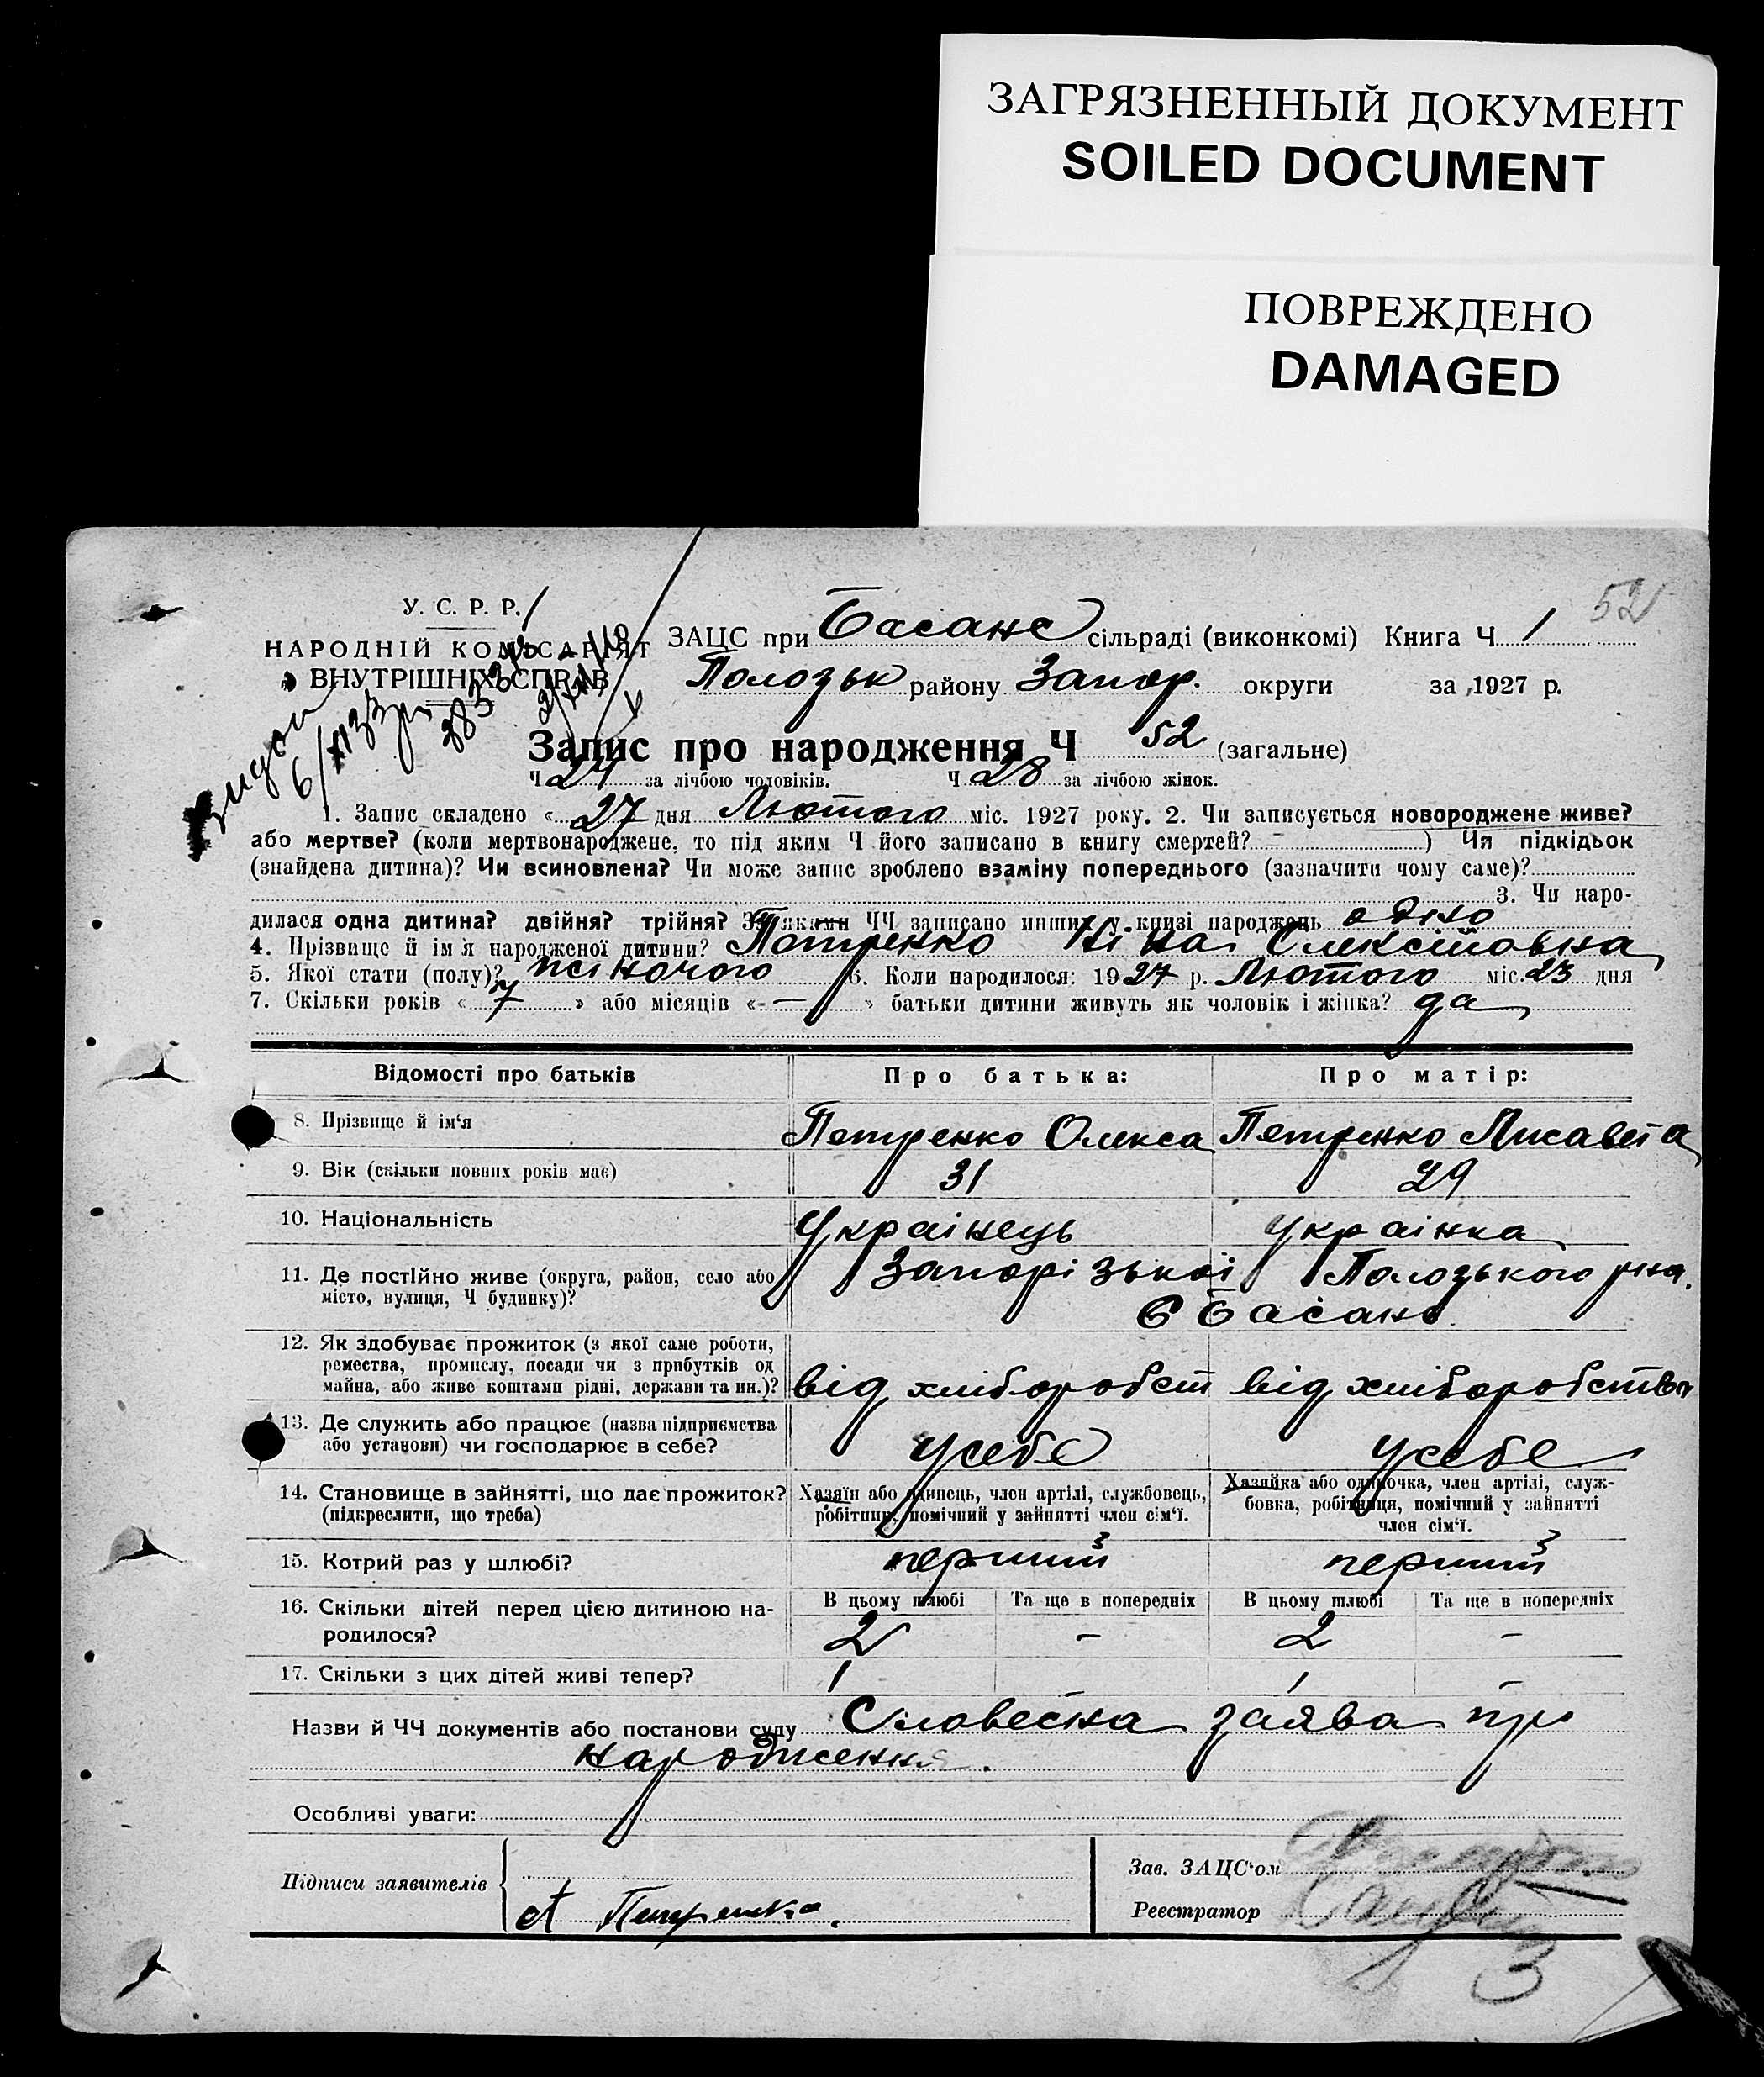 ЗАГРЯЗНЕННЫЙ ДОКУМЕНТ
SOILED DOCUMENT
ПОВРЕЖДЕНО
DAMAGED
52
У. С. Р. Р.
НАРОДНІЙ КОМІСАРІЯТ
ВНУТРІШНІХ СПРАВ
ЗАЦС при Басанс сільраді (виконкомі) Книга Ч 1
Полозьк району Запор. округи за 1927 р.
Запис про народження Ч 52 (загальне)
Ч 24 за лічбою чоловіків. Ч 28 за лічбою жінок.
1. Запис складено « 27 дня Лютого міс. 1927 року. 2. Чи записується новороджене живе?
або мертве? (коли мертвонароджене, то під яким Ч його записано в книгу смертей? - ) Чи підкідьок
(знайдена дитина)? Чи всиновлена? Чи може запис зроблено взаміну попереднього (зазначити чому саме)?
3. Чи наро-
дилася одна дитина? двійня? трійня? За якими ЧЧ записано инших у книзі народжень одно
4. Прізвище й ім'я народженої дитини? Петренко Ніна Олексіювна
5. Якої стати (полу)? жіночого 6. Коли народилося: 1927 р. Лютого міс. 23 дня
7. Скільки років « 7 » або місяців « — » батьки дитини живуть як чоловік і жінка? да
Відомості про батьків Про батька: Про матір:
8. Прізвище й ім'я Петренко Олекса Петренко Лисавета
9. Вік (скільки повних років має) 31 29
10. Національність Українець українка
11. Де постійно живе (округа, район, село або Запорізької Полозького р-на.
місто, вулиця, Ч будинку)? с Басань
12. Як здобуває прожиток (з якої саме роботи,
ремества, промислу, посади чи з прибутків од
майна, або живе коштами рідні, держави та ин.)? від хліборобст від хліборобства
13. Де служить або працює (назва підприємства
або установи) чи господарює в себе? усебе усебе
14. Становище в зайнятті, що дає прожиток? Хазяїн або одинець, член артілі, службовець, Хазяйка або одиночка, член артілі, служ-
(підкреслити, що треба) робітник, помічний у зайнятті член сім'ї. бовка, робітниця, помічний у зайнятті
член сім'ї.
15. Котрий раз у шлюбі? перший перший
16. Скільки дітей перед цією дитиною на- В цьому шлюбі Та ще в попередніх В цьому шлюбі Та ще в попередніх
родилося? 2 - 2 -
17. Скільки з цих дітей живі тепер? 1 - 1 -
Назви й ЧЧ документів або постанови суду Словесна заява про
народження.
Особливі уваги:
Підписи заявителів
А Петренко.
Зав. ЗАЦС'ом
Реєстратор
3